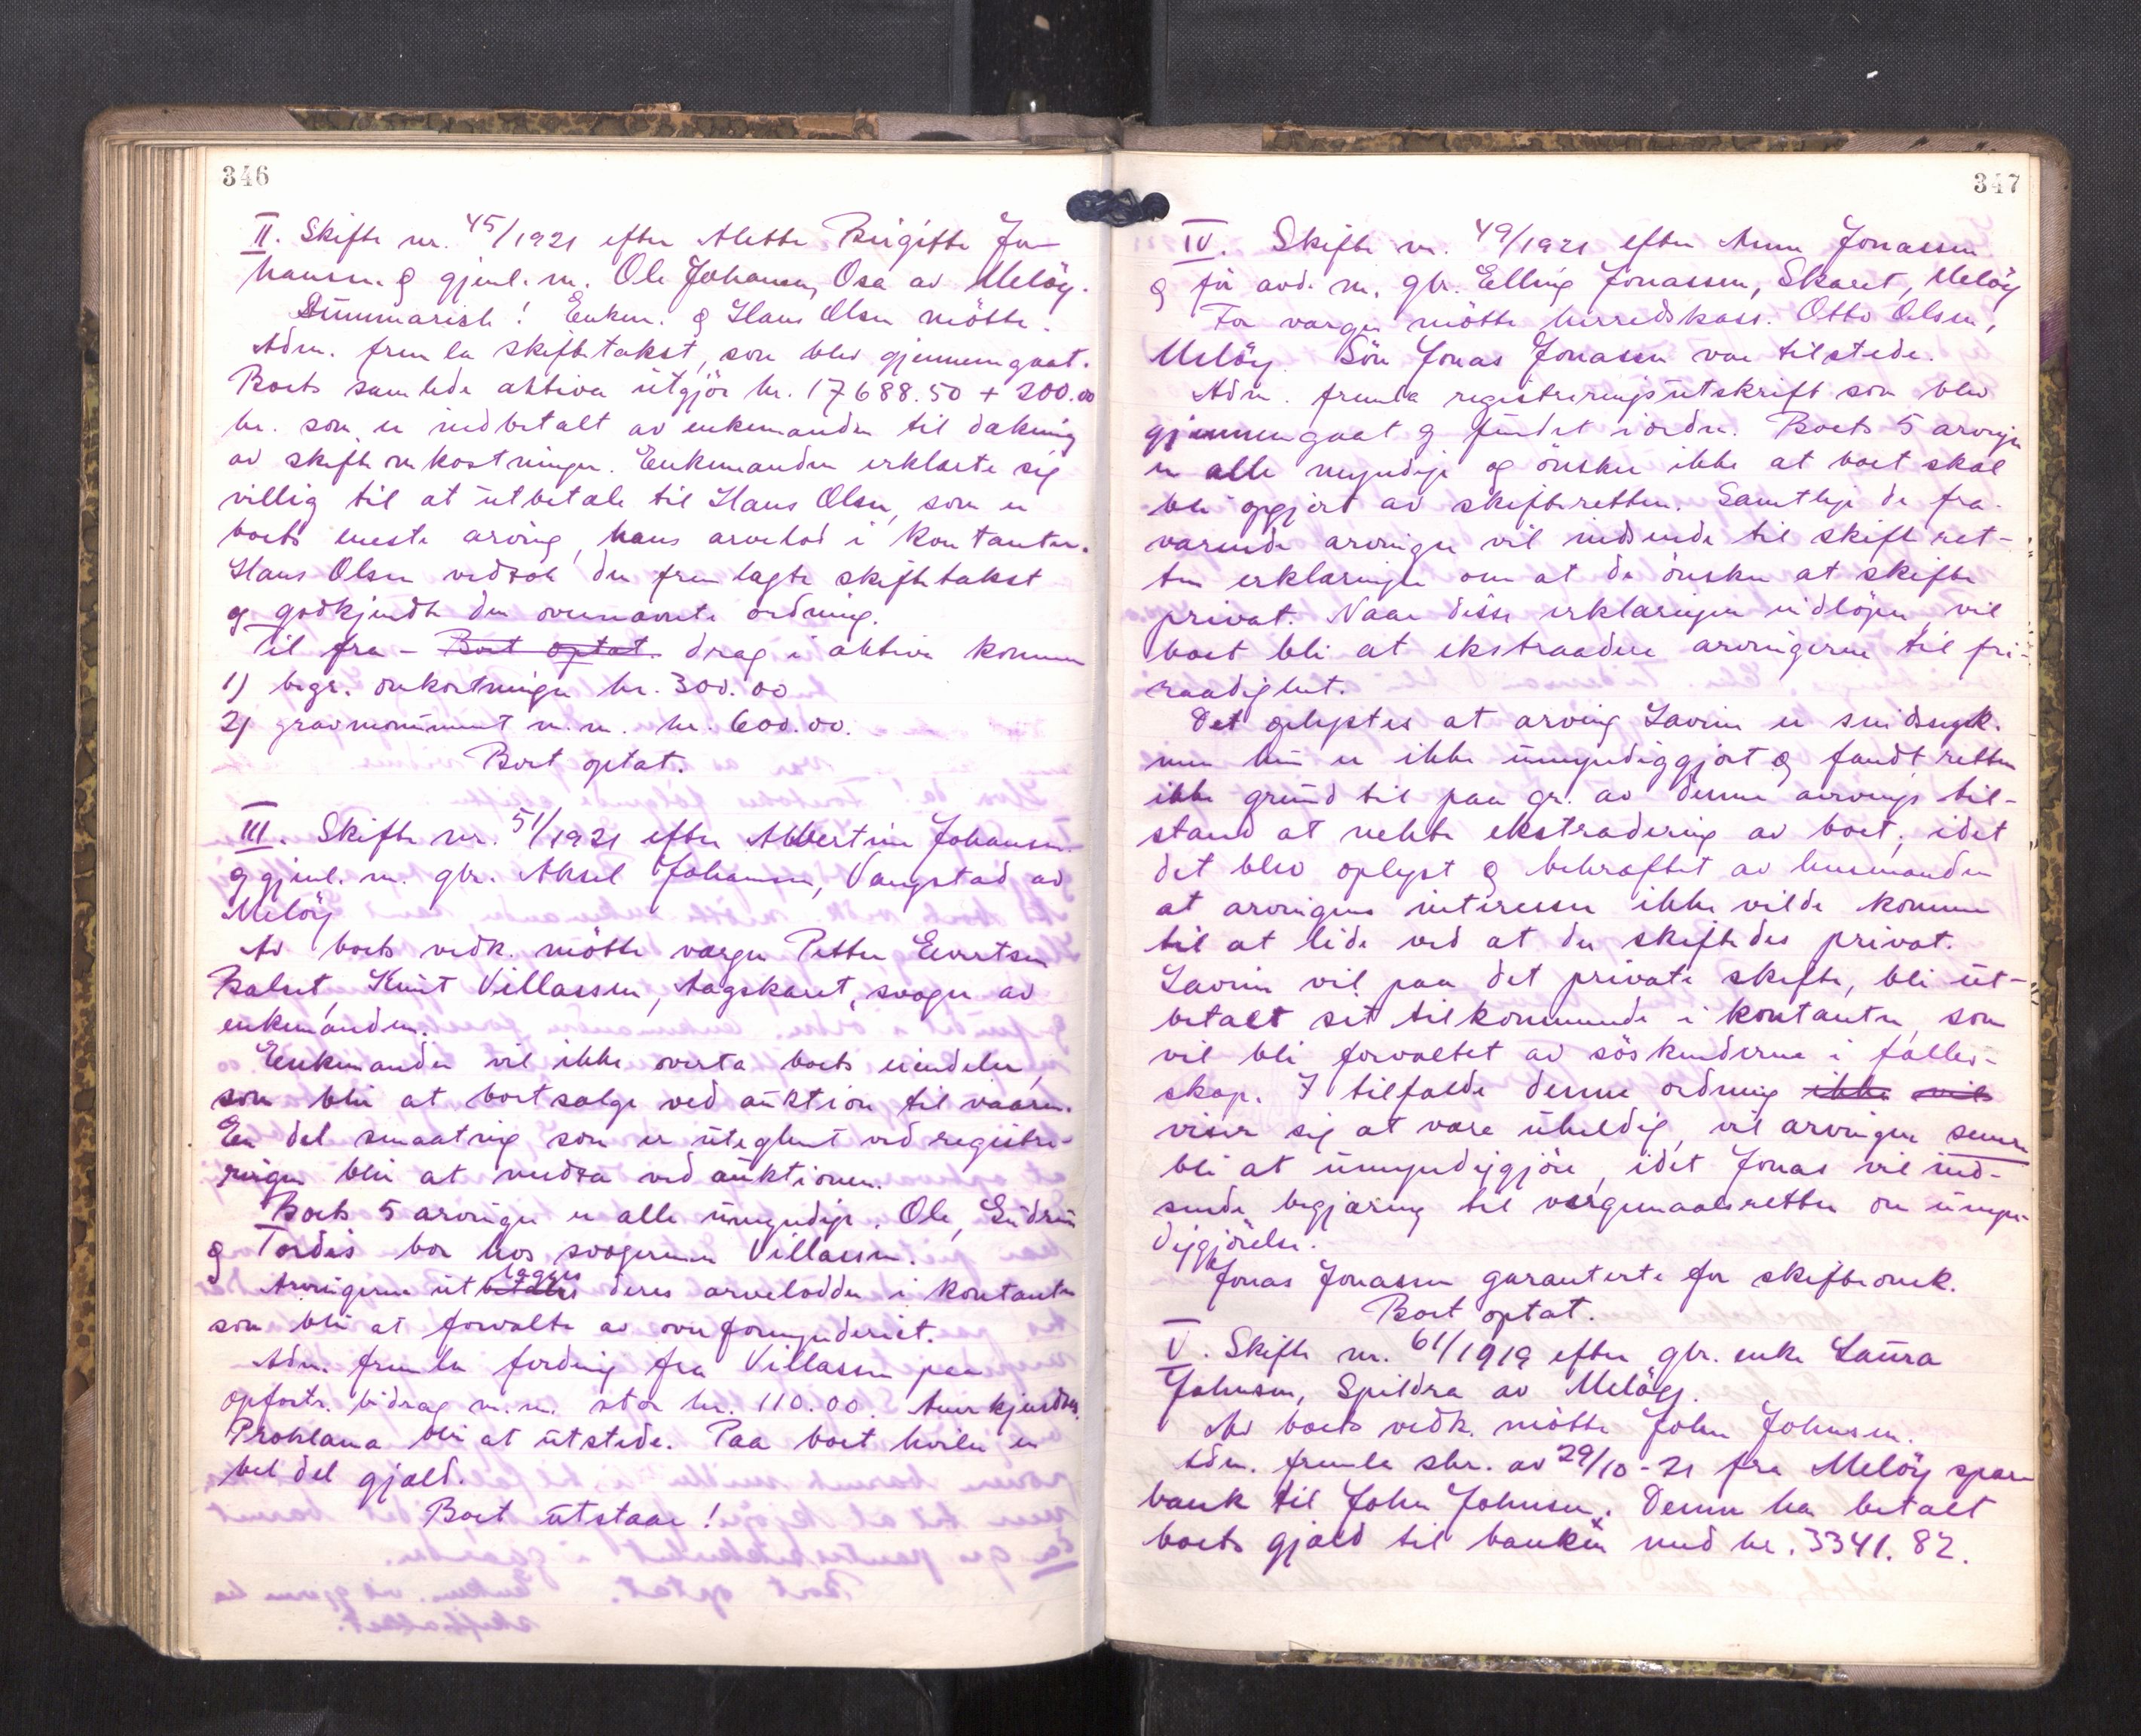 346
II. Skifte nr. 45/1921 efter Alette Birgitte Jo-
hansen & gjenl. m. Ole Johansen, Osa av Meløy.
Summarisk! Enkem. & Hans Olsen møtte.
Adm. frem la skiftetakst, som blev gjennemgaat.
Boets samlede aktiva utgjør kr. 17688.50 + 200.00
kr. som er indbetalt av enkemanden til dækning
av skifteomkostninger. Enkemanden erklærte sig
villig til at utbetale til Hans Olsen, som er
boets eneste arving, hans arvelod i kontanter.
Hans Olsen vedtok den fremlagte skiftetakst
og godkjendte den overnævnte ordning.
Til fra - Boet optat. drag i aktiva kommer
1) begr. omkostninger kr. 300.00
2) gravmonument m.m. kr. 600.00.
Boet optat.
III. Skifte nr. 51/1921 efter Albertine Johansen
& gjenl. m. gbr. Aksel Johansen, Vangstad av
Meløy
Av boets vedk. møtte værgen Petter Evertsen
Balset, Knut Villassen, Aagskaret, svoger av
enkemanden.
Enkemanden vil ikke overta boets eiendeler,
som blir at bortsælge ved auktion til vaaren.
En del smaating som er uteglemt ved registre-
ringen blir at medta ved auktionen.
Boets 5 arvinger er alle umyndige. Ole, Gudrun
& Tordis bor hos svogeren Villassen.
Arvingerne utbetales lægges deres arvelodder i kontanter
som blir at forvalte av overformynderiet.
Adm. frem la fordring fra Villassen paa
opfostr. bidrag m.m. stor kr. 110.00. Anerkjendtes.
Proklama blir at utstede. Paa boet hviler en
hel del gjæld.
Boet utstaar!
347
IV. Skifte nr. 49/1921 efter Anne Jonassen
& før avd. m. gbr. Elling Jonassen, Skaret, Meløy
For værgen møtte herredskass. Otto Olsen,
Meløy. Søn Jonas Jonassen var tilstede.
Adm. fremla registreringsutskrift som blev
gjennemgaat & fundet iorden. Boets 5 arvinger
er alle myndige og ønsker ikke at boet skal
bli opgjort av skifteretten. Samtlige de fra-
værende arvinger vil indsende til skifteret-
ten erklæringer om at de ønsker at skifte
privat. Naar disse erklæringer indløper, vil
boet bli at ekstradere arvingerne til fri-
raadighet.
Det oplystes at arving Lavine er sindssyk.
men hun er ikke umyndiggjort & fandt retten
ikke grund til paa gr. av denne arvings til-
stand at nekte ekstradering av boet, idet
det blev oplyst & bekræftet av lensmanden
at arvingens interesser ikke vilde komme
til at lide ved at der skiftedes privat.
Lavine vil paa det private skifte, bli ut-
betalt sit tilkommende i kontanter, som
vil bli forvaltet av søskenderne i fælles-
skap. I tilfælde denne ordning ikke vil
viser sig at være uheldig, vil arvingen senere
bli at umyndiggjøre, idet Jonas vil ind-
sende begjæring til vergemaalsretten om umyn-
diggjørelse.
Jonas Jonassen garanterte for skifteomk.
Boet optat.
V. Skifte nr. 61/1919 efter gbr. enke Laura
Johnsen, Spildra av Meløy.
Av boets vedk. møtte John Johnsen.
Adm. fremla skr. av 29/10-21 fra Meløy spare
bank til John Johnsen. Denne har betalt
boets gjæld til banken med kr. 3341.82.